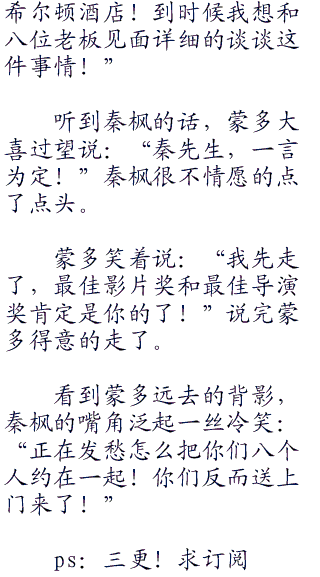 希尔顿酒店！到时候我想和
八位老板见面详细的谈谈这
件事情！”
听到秦枫的话，蒙多大
喜过望说：“秦先生，一言
为定！”秦枫很不情愿的点
了点头。
蒙多笑着说：“我先走
了，最佳影片奖和最佳导演
奖肯定是你的了！”说完蒙
多得意的走了。
看到蒙多远去的背影，
秦枫的嘴角泛起一丝冷笑：
“正在发愁怎么把你们八个
人约在一起！你们反而送上
门来了！”
ps：三更！求订阅